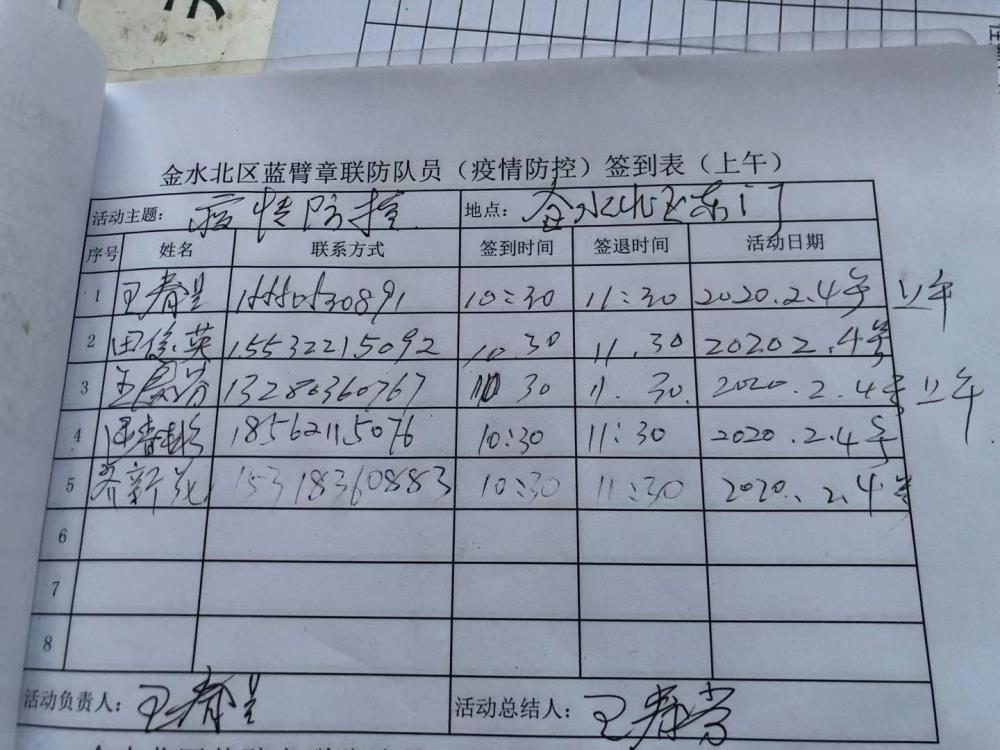 金水北区蓝臂章联防队员（疫情防控）签到表（上午）
活动主题： 疫情防控 地点： 金水北区东门
序号 姓名 联系方式 签到时间 签退时间 活动日期
1 王春 10:30 11:30 2020.2.4号 上午
2 田俊英 15532215092 10.30 11.30 20202.4号
3 王 13280360767 10 30 11.30. 2020.2.4号 上午
4 18562115076 10:30 11:30 2020.2.4号
5 齐新花 15318360883 10:30 11:30 2020.2.4号
6
7
8
活动负责人： 王春 活动总结人： 王春